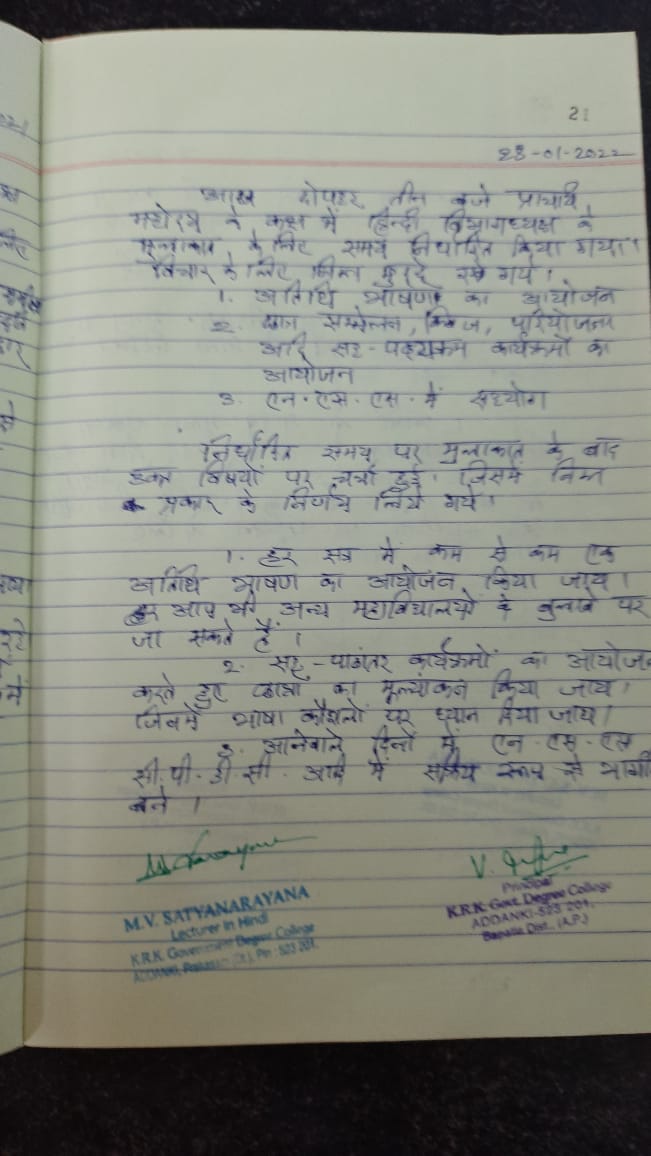 21
28-01-2022
आज दोपहर तीन बजे प्राचार्य
महोदय के कक्ष में हिन्दी विभागध्यक्ष के
मुलाकात के लिए समय निर्धारित किया गया।
विचार के लिए निम्न मुद्दे रखे गये।
1. अतिथि भाषण का आयोजन
2. छात्र सम्मेलन, क्विज, परियोजना
आदि सह-पाठ्यक्रम कार्यक्रमों का
आयोजन
3. एन.एस.एस. में सहयोग
निर्धारित समय पर मुलाकात के बाद
उक्त विषयों पर चर्चा हुई। जिसमें निम्न
प्रकार के निर्णय लिये गये।
1. हर सत्र में कम से कम एक
अतिथि भाषण का आयोजन किया जाय।
आप भी अन्य महाविद्यालयों के बुलावे पर
जा सकते हैं।
2. सह-पाठांतर कार्यक्रमों का आयोजन
करते हुए छात्रों का मूल्यांकन किया जाय।
जिनमें भाषा कौशलों पर ध्यान दिया जाय।
3. आनेवाले दिनों में एन.एस.एस
सी.पी.डी.सी. आदि में सक्रिय रूप से भागी
बने।
M.V. SATYANARAYANA
Lecturer in Hindi
K.R.K. Government Degree College
ADDANKI, Prakasam (Dt.), Pin : 523 201.
Principal
K.R.K. Govt. Degree College
ADDANKI-523 201.
Bapatla Dist., (A.P.)